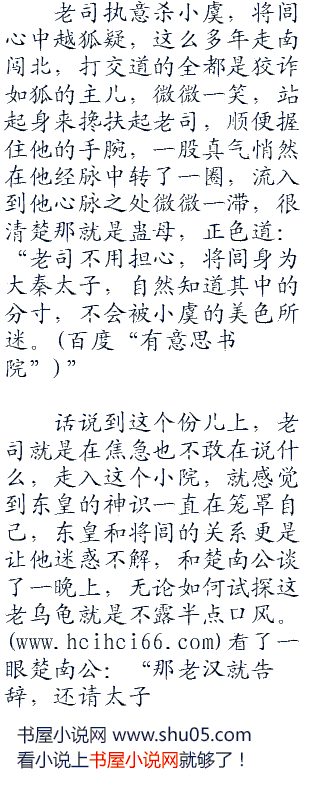 老司执意杀小虞，将闾
心中越狐疑，这么多年走南
闯北，打交道的全都是狡诈
如狐的主儿，微微一笑，站
起身来搀扶起老司，顺便握
住他的手腕，一股真气悄然
在他经脉中转了一圈，流入
到他心脉之处微微一滞，很
清楚那就是蛊母，正色道：
“老司不用担心，将闾身为
大秦太子，自然知道其中的
分寸，不会被小虞的美色所
迷。(百度“有意思书
院”)”
话说到这个份儿上，老
司就是在焦急也不敢在说什
么，走入这个小院，就感觉
到东皇的神识一直在笼罩自
己，东皇和将闾的关系更是
让他迷惑不解，和楚南公谈
了一晚上，无论如何试探这
老乌龟就是不露半点口风。
(www.hcihci66.com)看了一
眼楚南公：“那老汉就告
辞，还请太子
书屋小说网 www.shu05.com
看小说上书屋小说网就够了！